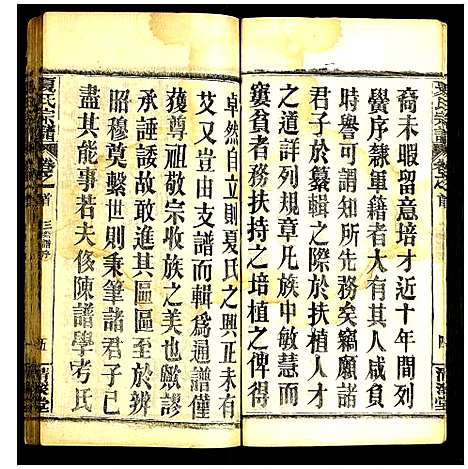 裔未暇留意培才近十年間列
黌序隸軍籍者不乏人咸負
時譽可謂知所先務矣竊願諸
君子於纂輯之際於扶植人
之道增刊規章凡族中敏慧而
窶貧者務扶持之培植之俾得
卓然自立則夏氏之興正未有
艾又豈由支譜而輯爲通譜僅
獲尊祖敬宗收族之美也歟謬
承諈諉故敢進其區區至於辨
昭穆奠繫世則秉筆諸君子已
盡其能事若夫侈陳譜學考氏
夏氏宗譜
卷之首